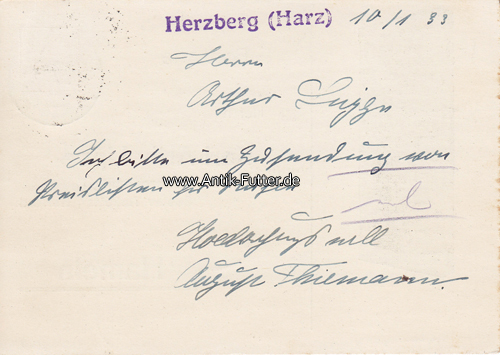 Herzberg (Harz) 10/1 33
Herrn
Arthur
Ich bitte um Zusendung von
www.Antik-Futter.de
Preislisten für
Hochachtungsvoll
August Thiemann